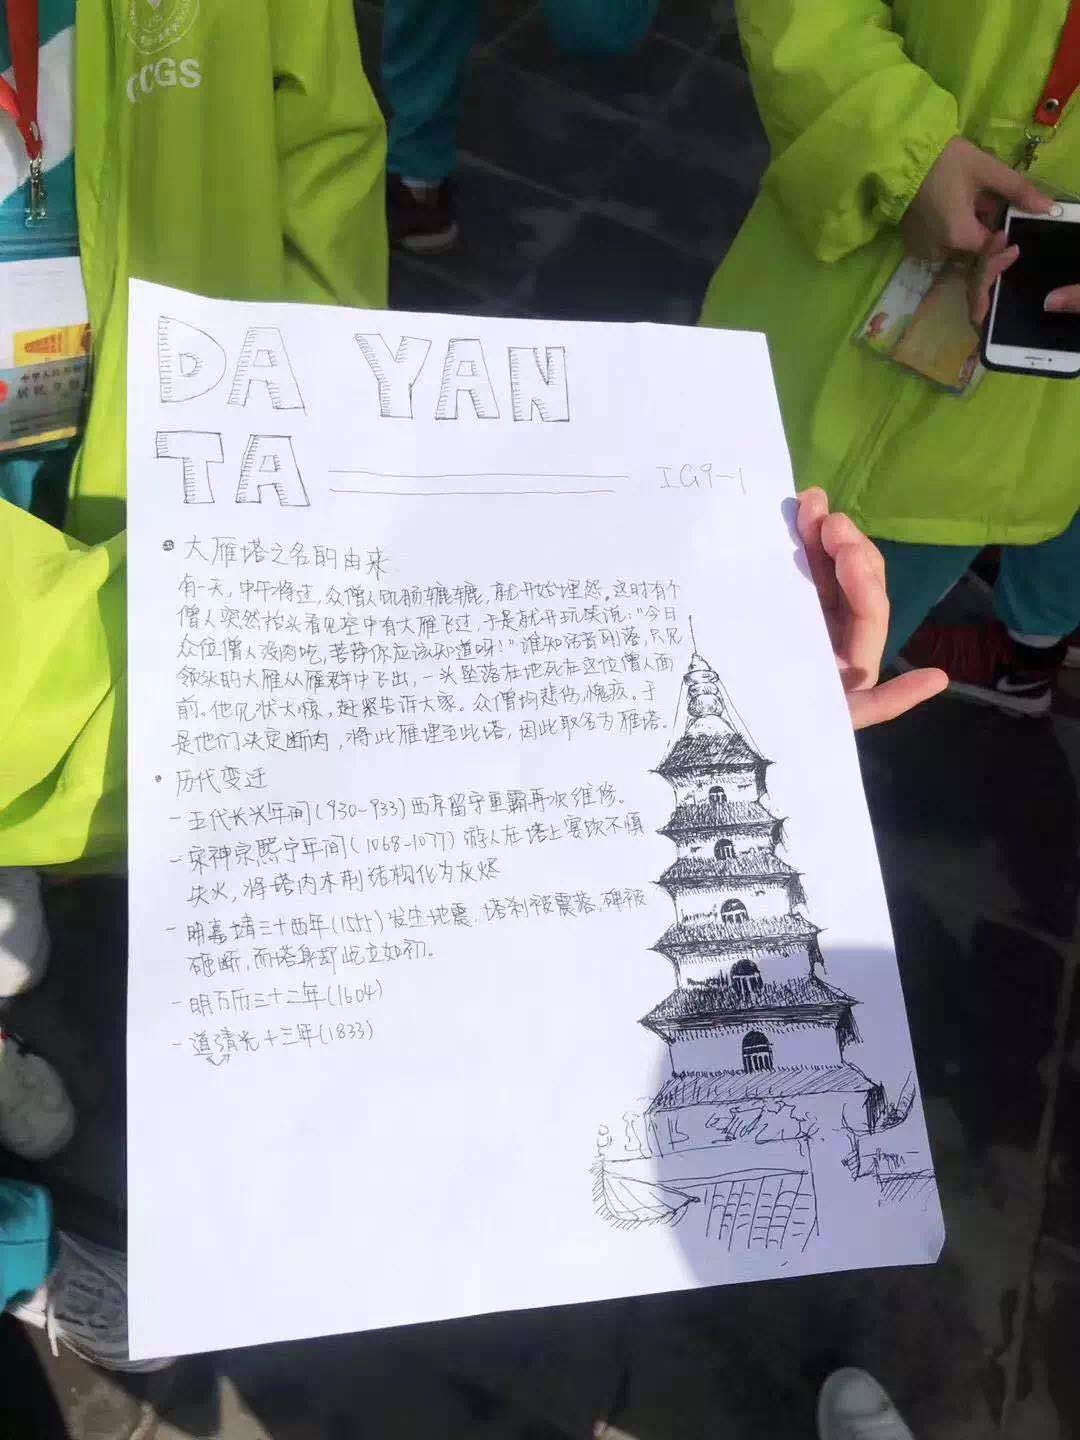 CCGS
DA YAN
TA
IG9-1
大雁塔之名的由来
有一天，中午将过，众僧人饥肠辘辘，就开始埋怨。这时有个
僧人突然抬头看见空中有大雁飞过，于是就开玩笑说："今日
众位僧人没肉吃，菩萨你应该知道呀！"谁知话音刚落，只见
领头的大雁从雁群中飞出，一头坠落在地死在这位僧人面
前。他见状大惊，赶紧告诉大家。众僧均悲伤，愧疚。于
是他们决定断肉，将此雁埋至此塔，因此取名为雁塔。
历代变迁
- 五代长兴年间(930-933)西京留守重霸再次维修。
- 宋神宗熙宁年间(1068-1077)游人在塔上宴饮不慎
失火，将塔内木制结构化为灰烬
- 明嘉靖三十四年(1555)发生地震，塔刹被震落，碑被
砸断，而塔身却屹立如初。
- 明万历三十二年(1604)
- 道清光十三年(1833)